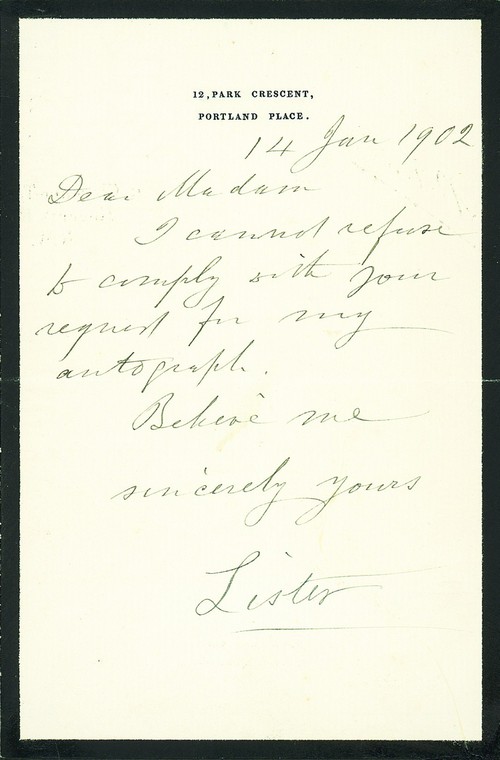 12, PARK CRESCENT,
PORTLAND PLACE.
14 Jan 1902
Dear Madam
I cannot refuse
to comply with your
request for my
autograph.
Believe me
sincerely yours
Lister